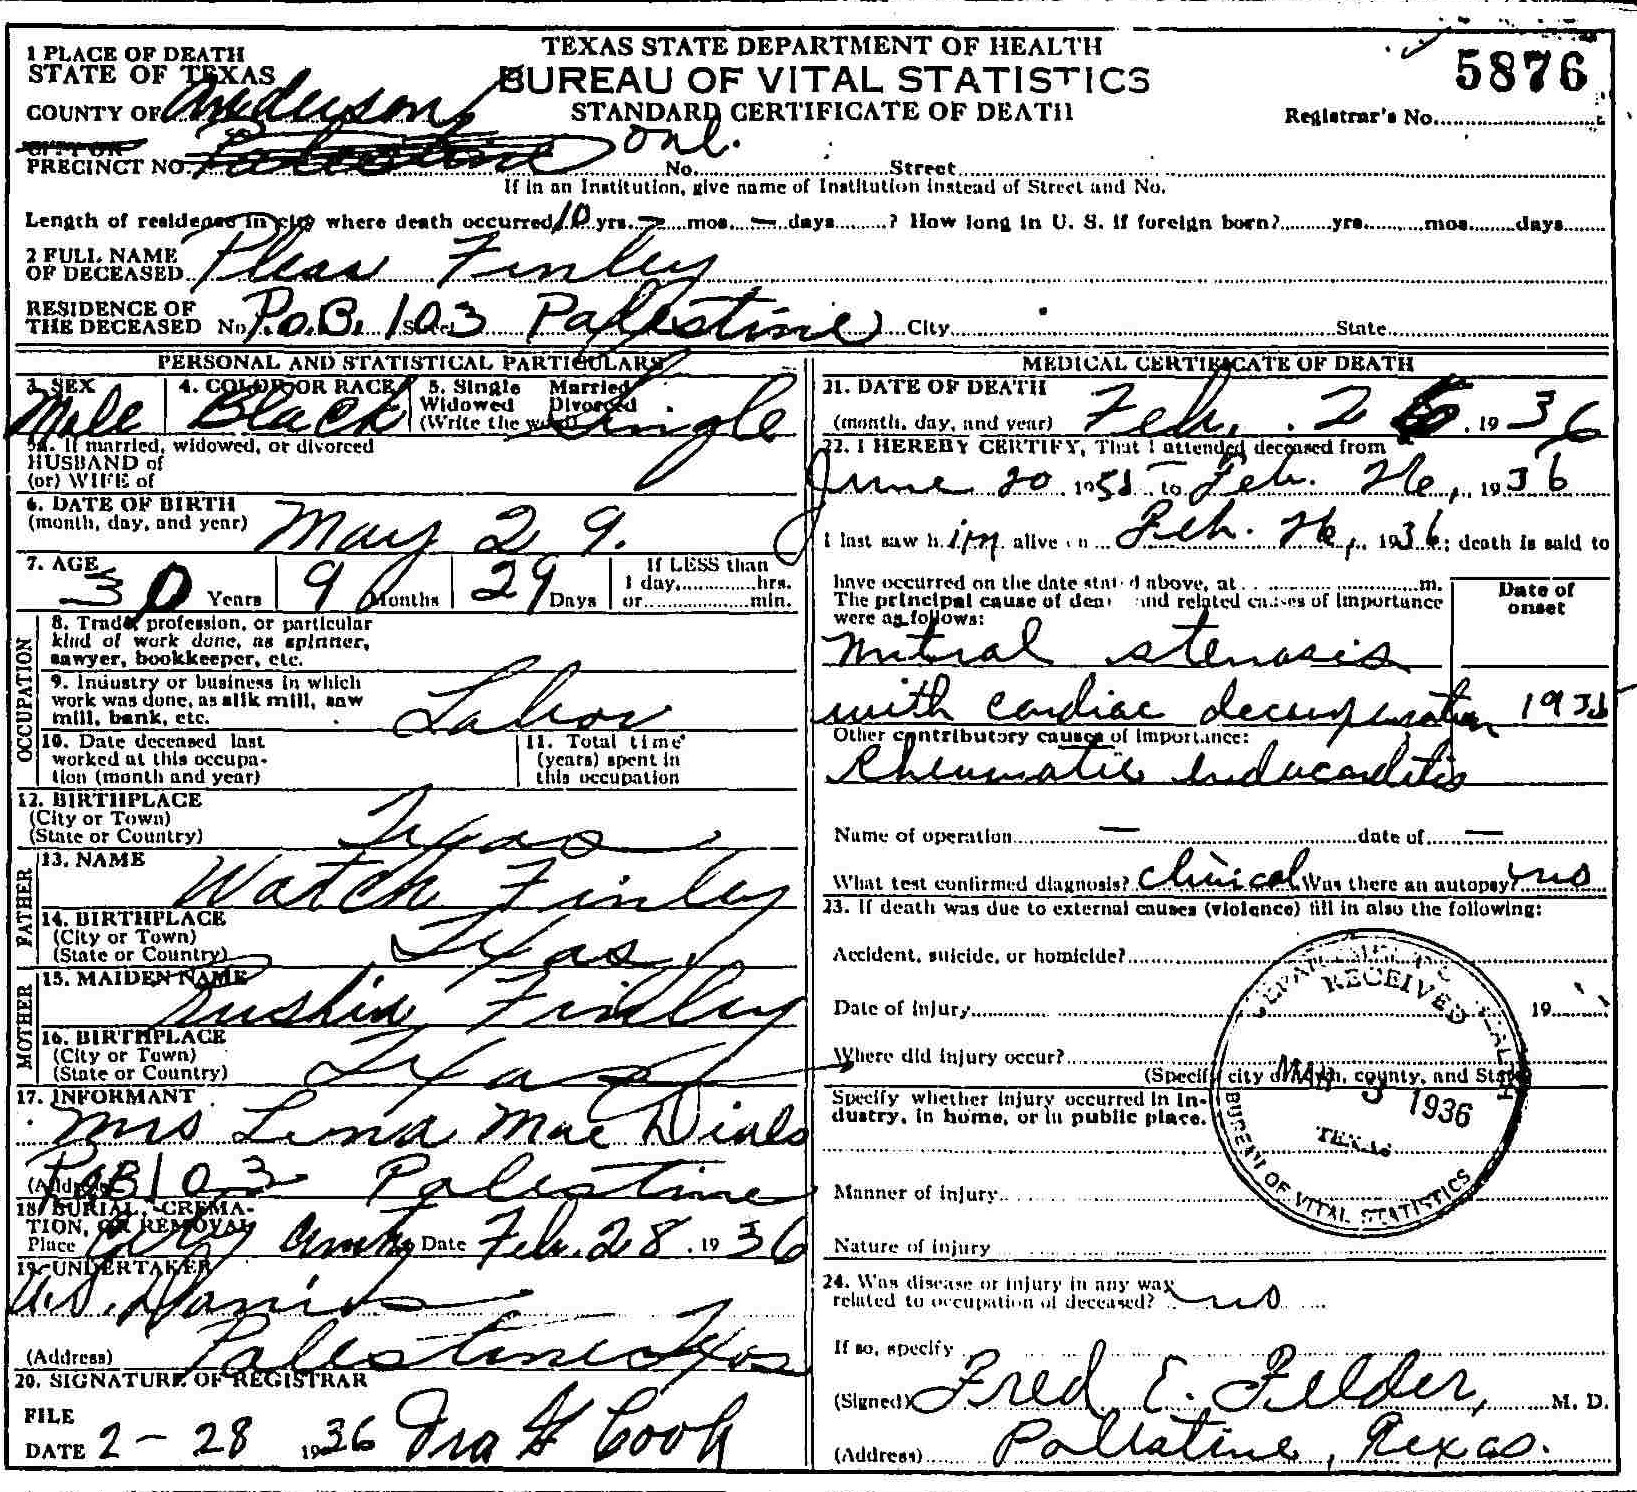 TEXAS STATE DEPARTMENT OF HEALTH
BUREAU OF VITAL STATISTICS
STANDARD CERTIFICATE OF DEATH
5876
Registrar's No.
1 PLACE OF DEATH
STATE OF TEXAS
COUNTY OF Anderson
CITY OR
PRECINCT NO. Palestine one. No. Street
If in an Institution, give name of Institution instead of Street and No.
Length of residence in city where death occurred 10 yrs. – mos. – days ? How long in U. S. if foreign born? yrs. mos. days
2 FULL NAME
OF DECEASED Pleas Finley
RESIDENCE OF
THE DECEASED No. P.O.B. 103 Street Palestine City State
PERSONAL AND STATISTICAL PARTICULARS
3. SEX 4. COLOR OR RACE 5. Single Married
Widowed Divorced
(Write the word)
Male Black Single
5a. If married, widowed, or divorced
HUSBAND of
(or) WIFE of
6. DATE OF BIRTH
(month, day, and year) May 29.
7. AGE 30 Years 9 Months 29 Days
If LESS than
1 day, hrs.
or min.
OCCUPATION
8. Trade, profession, or particular
kind of work done, as spinner,
sawyer, bookkeeper, etc.
9. Industry or business in which
work was done, as silk mill, saw
mill, bank, etc. Labor
10. Date deceased last
worked at this occupa-
tion (month and year)
11. Total time
(years) spent in
this occupation
12. BIRTHPLACE
(City or Town)
(State or Country) Texas
FATHER
13. NAME Watch Finley
14. BIRTHPLACE
(City or Town)
(State or Country) Texas
MOTHER
15. MAIDEN NAME Finley
16. BIRTHPLACE
(City or Town)
(State or Country) Texas
17. INFORMANT
Mrs Lena Mae Dials
(Address) P.O.B 103 Palestine
18. BURIAL, CREMA-
TION, OR REMOVAL
Place Date Feb. 28. 1936
19. UNDERTAKER
(Address) Palestine Texas
20. SIGNATURE OF REGISTRAR
FILE
DATE 2 – 28 1936 Ira H Cook
MEDICAL CERTIFICATE OF DEATH
21. DATE OF DEATH
(month, day, and year) Feb. 26. 1936
22. I HEREBY CERTIFY, That I attended deceased from
June 20 19 to Feb. 26, 1936
I last saw him alive on Feb. 26, 1936; death is said to
have occurred on the date stated above, at m.
The principal cause of death and related causes of importance
were as follows:
Date of
onset
mitral stenosis
with cardiac decompensation 1935
Other contributory causes of importance:
Rheumatic endocarditis
Name of operation – date of –
What test confirmed diagnosis? Clinical Was there an autopsy? no
23. If death was due to external causes (violence) fill in also the following:
Accident, suicide, or homicide?
Date of injury 19
Where did injury occur?
(Specify city or town, county, and State)
Specify whether injury occurred in in-
dustry, in home, or in public place.
Manner of injury
Nature of injury
RECEIVED
MAR 3 1936
TEXAS
BUREAU OF VITAL STATISTICS
24. Was disease or injury in any way
related to occupation of deceased? no
If so, specify
(Signed) Fred E. Felder, M. D.
(Address) Palestine, Texas.